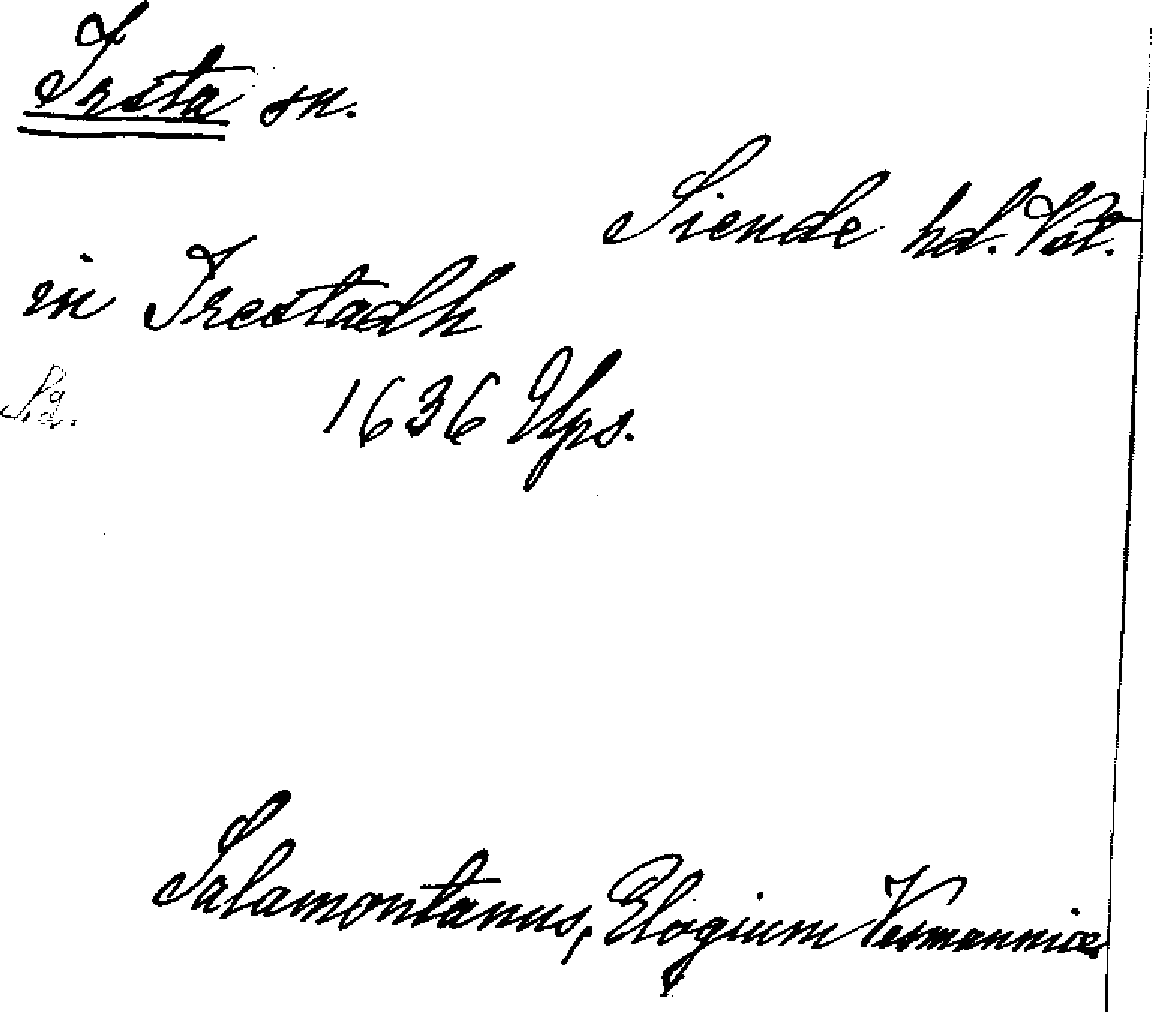 Irsta sn.
Siende hd. Vst.
in Irestadh
1636 Ups.
Salamontanus, Elogium Vesmanniæ